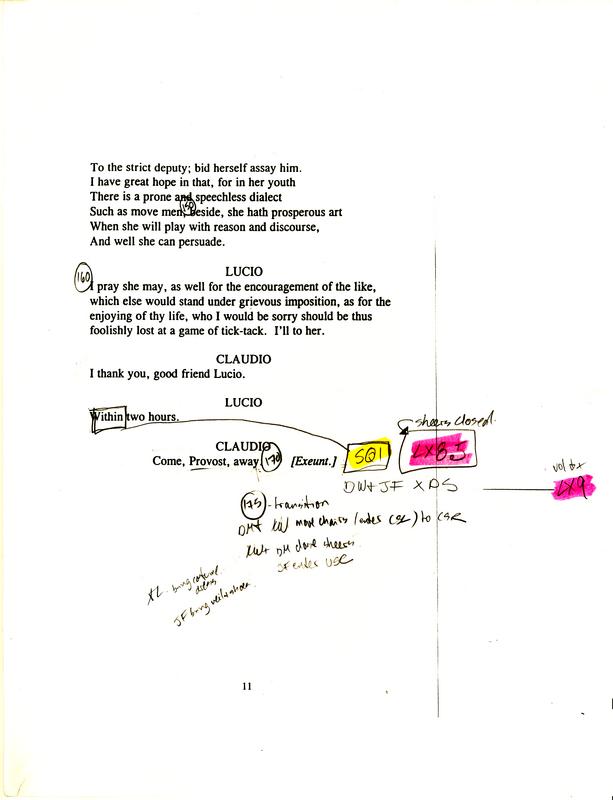 To the strict deputy; bid herself assay him.
I have great hope in that, for in her youth
There is a prone and speechless dialect
Such as move men; beside, she hath prosperous art
When she will play with reason and discourse,
And well she can persuade.
LUCIO
160
I pray she may, as well for the encouragement of the like,
which else would stand under grievous imposition, as for the
enjoying of thy life, who I would be sorry should be thus
foolishly lost at a game of tick-tack. I'll to her.
CLAUDIO
I thank you, good friend Lucio.
LUCIO
Within two hours.
sheers closed.
CLAUDIO
Come, Provost, away. 170 [Exeunt.] SQ1 LX8.5
LX9
DW+ JF X DS
175 - transition
move chairs to CSR
DM close sheers
JF enters USC
JF bring
11